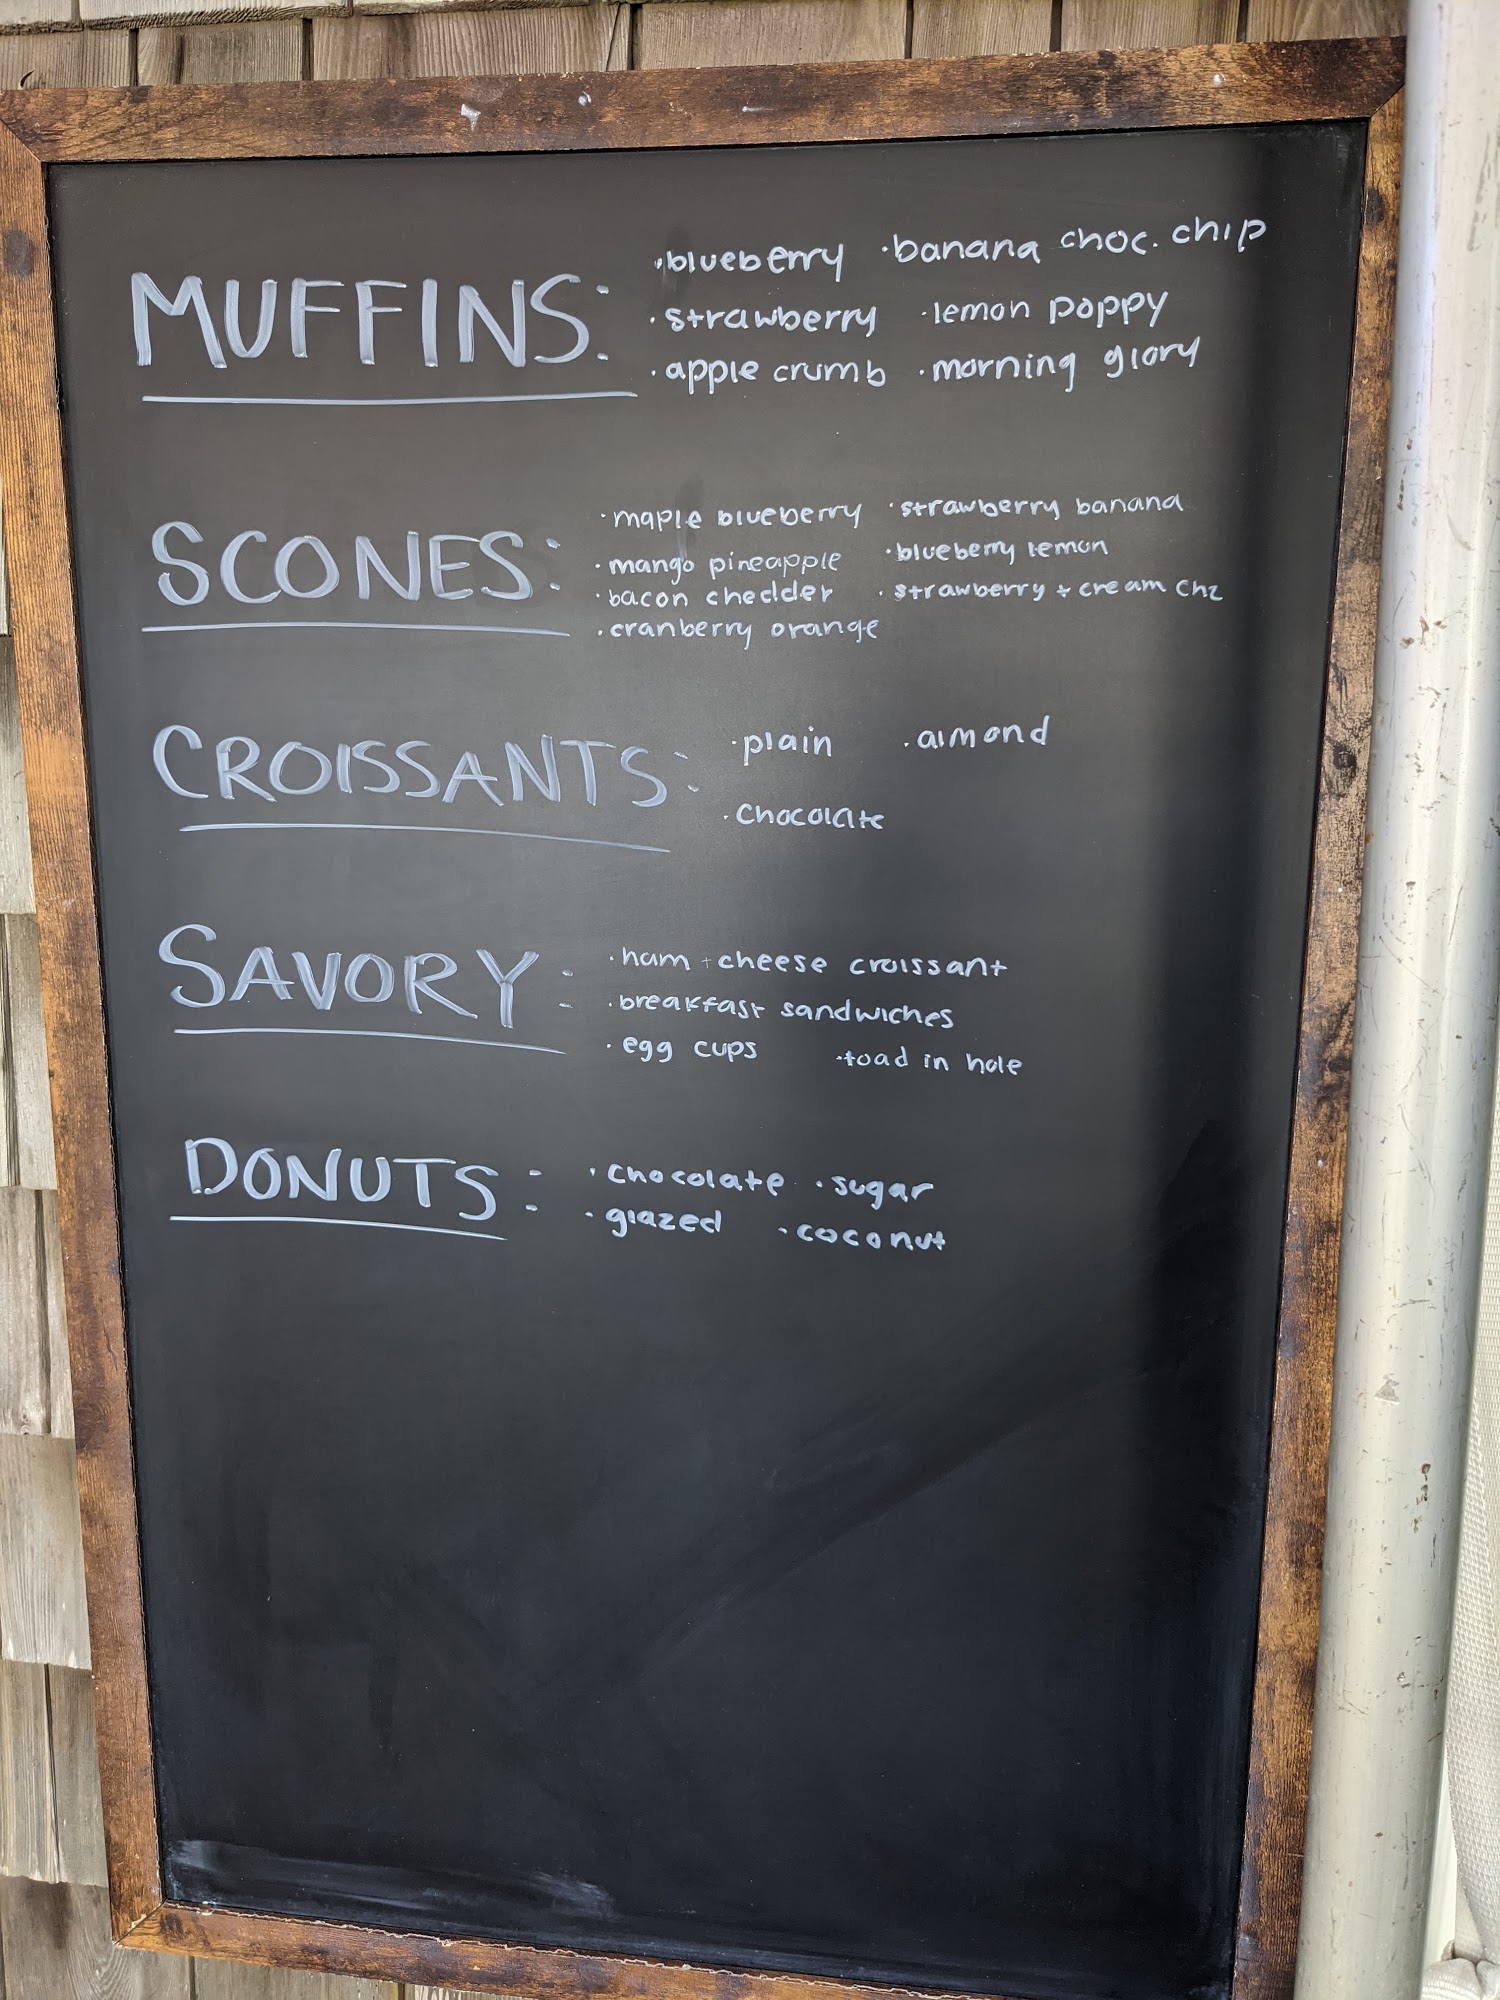 MUFFINS: ·blueberry ·banana choc. chip
·strawberry ·lemon poppy
·apple crumb ·morning glory
SCONES: ·maple blueberry ·strawberry banana
·mango pineapple ·blueberry lemon
·bacon chedder ·strawberry + cream chz
·cranberry orange
CROISSANTS: ·plain ·almond
·chocolate
SAVORY: ·ham + cheese croissant
·breakfast sandwiches
·egg cups ·toad in hole
DONUTS: ·chocolate ·sugar
·glazed ·coconut